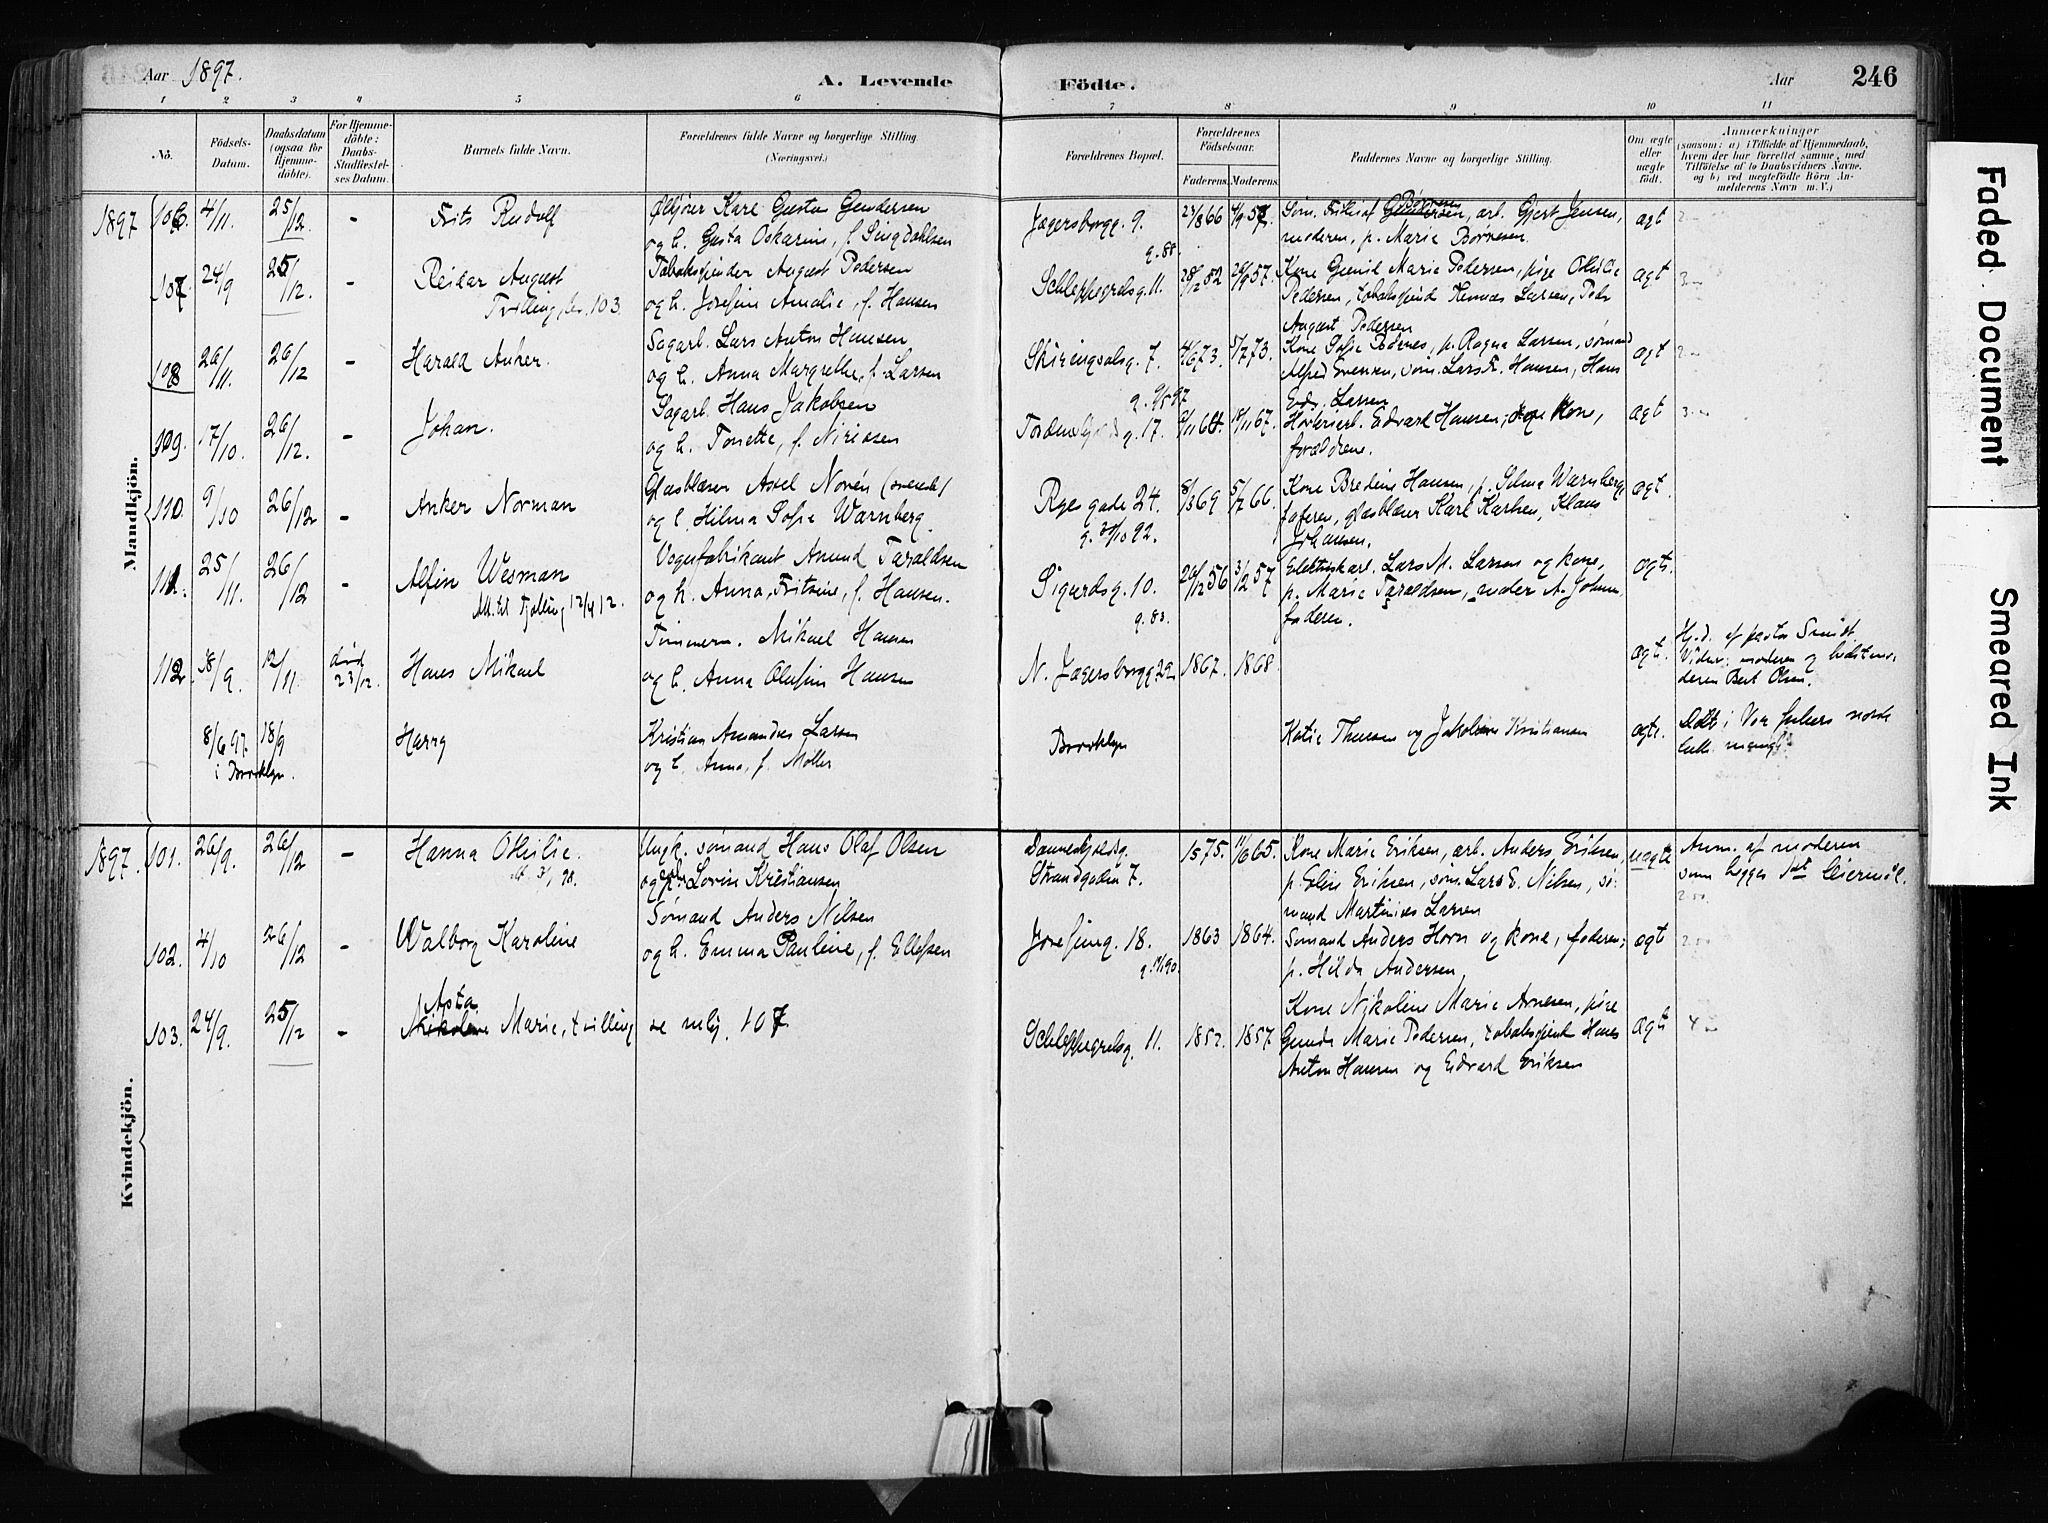 Aar 1897.
A. Levende
Födte.
Aar
246
1 2 3 4 5 6 7 8 9 10 11
No.
Födsels-Datum.
Daabsdatum (ogsaa for Hjemme-döbte).
For Hjemme-döbte: Daabs-Stadfæstel-ses Datum.
Barnets fulde Navn.
Forældrenes fulde Navne og borgerlige Stilling (Næringsvei.)
Forældrenes Bopæl.
Forældrenes Födselsaar.
Faderens. Moderens.
Faddernes Navne og borgerlige Stilling.
Om ægte eller uægte födt.
Anmærkninger
(saasom: a) i Tilfælde af Hjemmedaab,
hvem der har forrettet samme, med
Tilföielse af to Daabsvidners Navne.
og b) ved uægtefödte Börn An-
melderens Navn m. V.)
Mandkjön.
1897 106. 4/11. 25/12. - Frits Rudolf
Karl Gustav Gundersen
og h. Gusta Oskarine, f.
Jægersborgg. 9.
g. 88.
arb. Gjert Jensen,
moderen, p. Marie Børresen
ægt
107. 24/9 25/12. - Reidar August
Tvilling, se 103.
Tobakspinder August Pedersen
og h. Josefine Amalie, f. Hansen
Schleppegrelsg. 11. 28/12 52 29/9 57.
Kone Gunil Marie Pedersen, pige Othilie
Pedersen, tobakspind Larsen, Peder
August Pedersen
ægt
108 26/11. 26/12 - Harald Anker.
Sagarb. Lars Anton Hansen
og h. Anna Margrethe, f. Larsen
Skiringsalsg. 7. 4/6 73. 5/7 73.
Kone Sofie p. Ragna Larsen, sømand
Alfred Evensen, søm. Lars F. Hansen, Hans
Edv. Larsen
ægt
109. 17/10. 26/12. - Johan.
Sagarb. Hans Jakobsen
og h. Tonette, f.
g. 17. 18/11 67.
Edvard Hansen, kone,
forældrene.
ægt
110. 9/10 26/12 - Anker Norman
Glasblæser Axel Norén (svensk)
og h. Hilma Sofie Warnberg
gade 24. 8/3 69 5/7 66
g. 92.
Kone Bredine Hansen, p. Selma Warnberg,
faderen, glasblæser Karl Karlsen, Klaus
Johansen.
ægt.
111. 25/11. 26/12 - Alfin Wesman
Att. til Tjølling 12/4 12.
Vognfabrikant Amund Taraldsen
og h. Anna Fritsine, f. Hansen.
Sigurdsg. 10. 20/12 56 3/12 57
g. 83.
Lars M. Larsen og kone,
p. Marie Taraldsen,
faderen.
ægt.
112. 18/9. 12/11 død 23/12. Hans Mikael
Tømmerm. Mikael Hansen
og h. Anna Olufine Hansen
N. Jægersborgg. 29 1867. 1868.
ægt. Hj.d. af pastor Smidt
Vidner: moderen og
Bert Olsen.
8/6 97. 18/9
i Brooklyn.
Harry
Kristian Amandus Larsen
og h. Anna, f. Møller
Brooklyn
Katie Thuesen og Jakobine Kristiansen
ægte. Døbt i Vor frelsers norske
luth. menigh.
Kvindekjön.
1897. 101. 26/9. 26/12 - Hanna Othilie.
Ungk. sømand Hans Olaf Olsen
og p. Lovise Kristiansen
Danneskjoldsg.
Strandgaden 7. 1575. 11/6 65.
Kone Marie Eriksen, arb. Anders Eriksen,
p. Elise Eriksen, søm. Lars E. Nilsen, sø-
mand Martinius Larsen
uægte Anm. af moderen
som ligger 1ste leiermål.
102. 4/10 26/12 - Walborg Karoline
Sømand Anders Nilsen
og h. Emma Pauline, f. Ellefsen
Josefineg. 18. 1863 1864.
Sømand Anders Horn og kone, faderen,
p. Hilda Andersen
ægte
103. 24/9. 25/12 - Asta
Nikoline Marie, tvilling se mkj. 107
Schleppegrelsg. 11. 1852. 1857
Kone Nikoline Marie Arnesen, pige
Gunda Marie Pedersen, tobakspind Hans
Anton Hansen og Edvard Eriksen
ægte
Faded Document
Smeared Ink